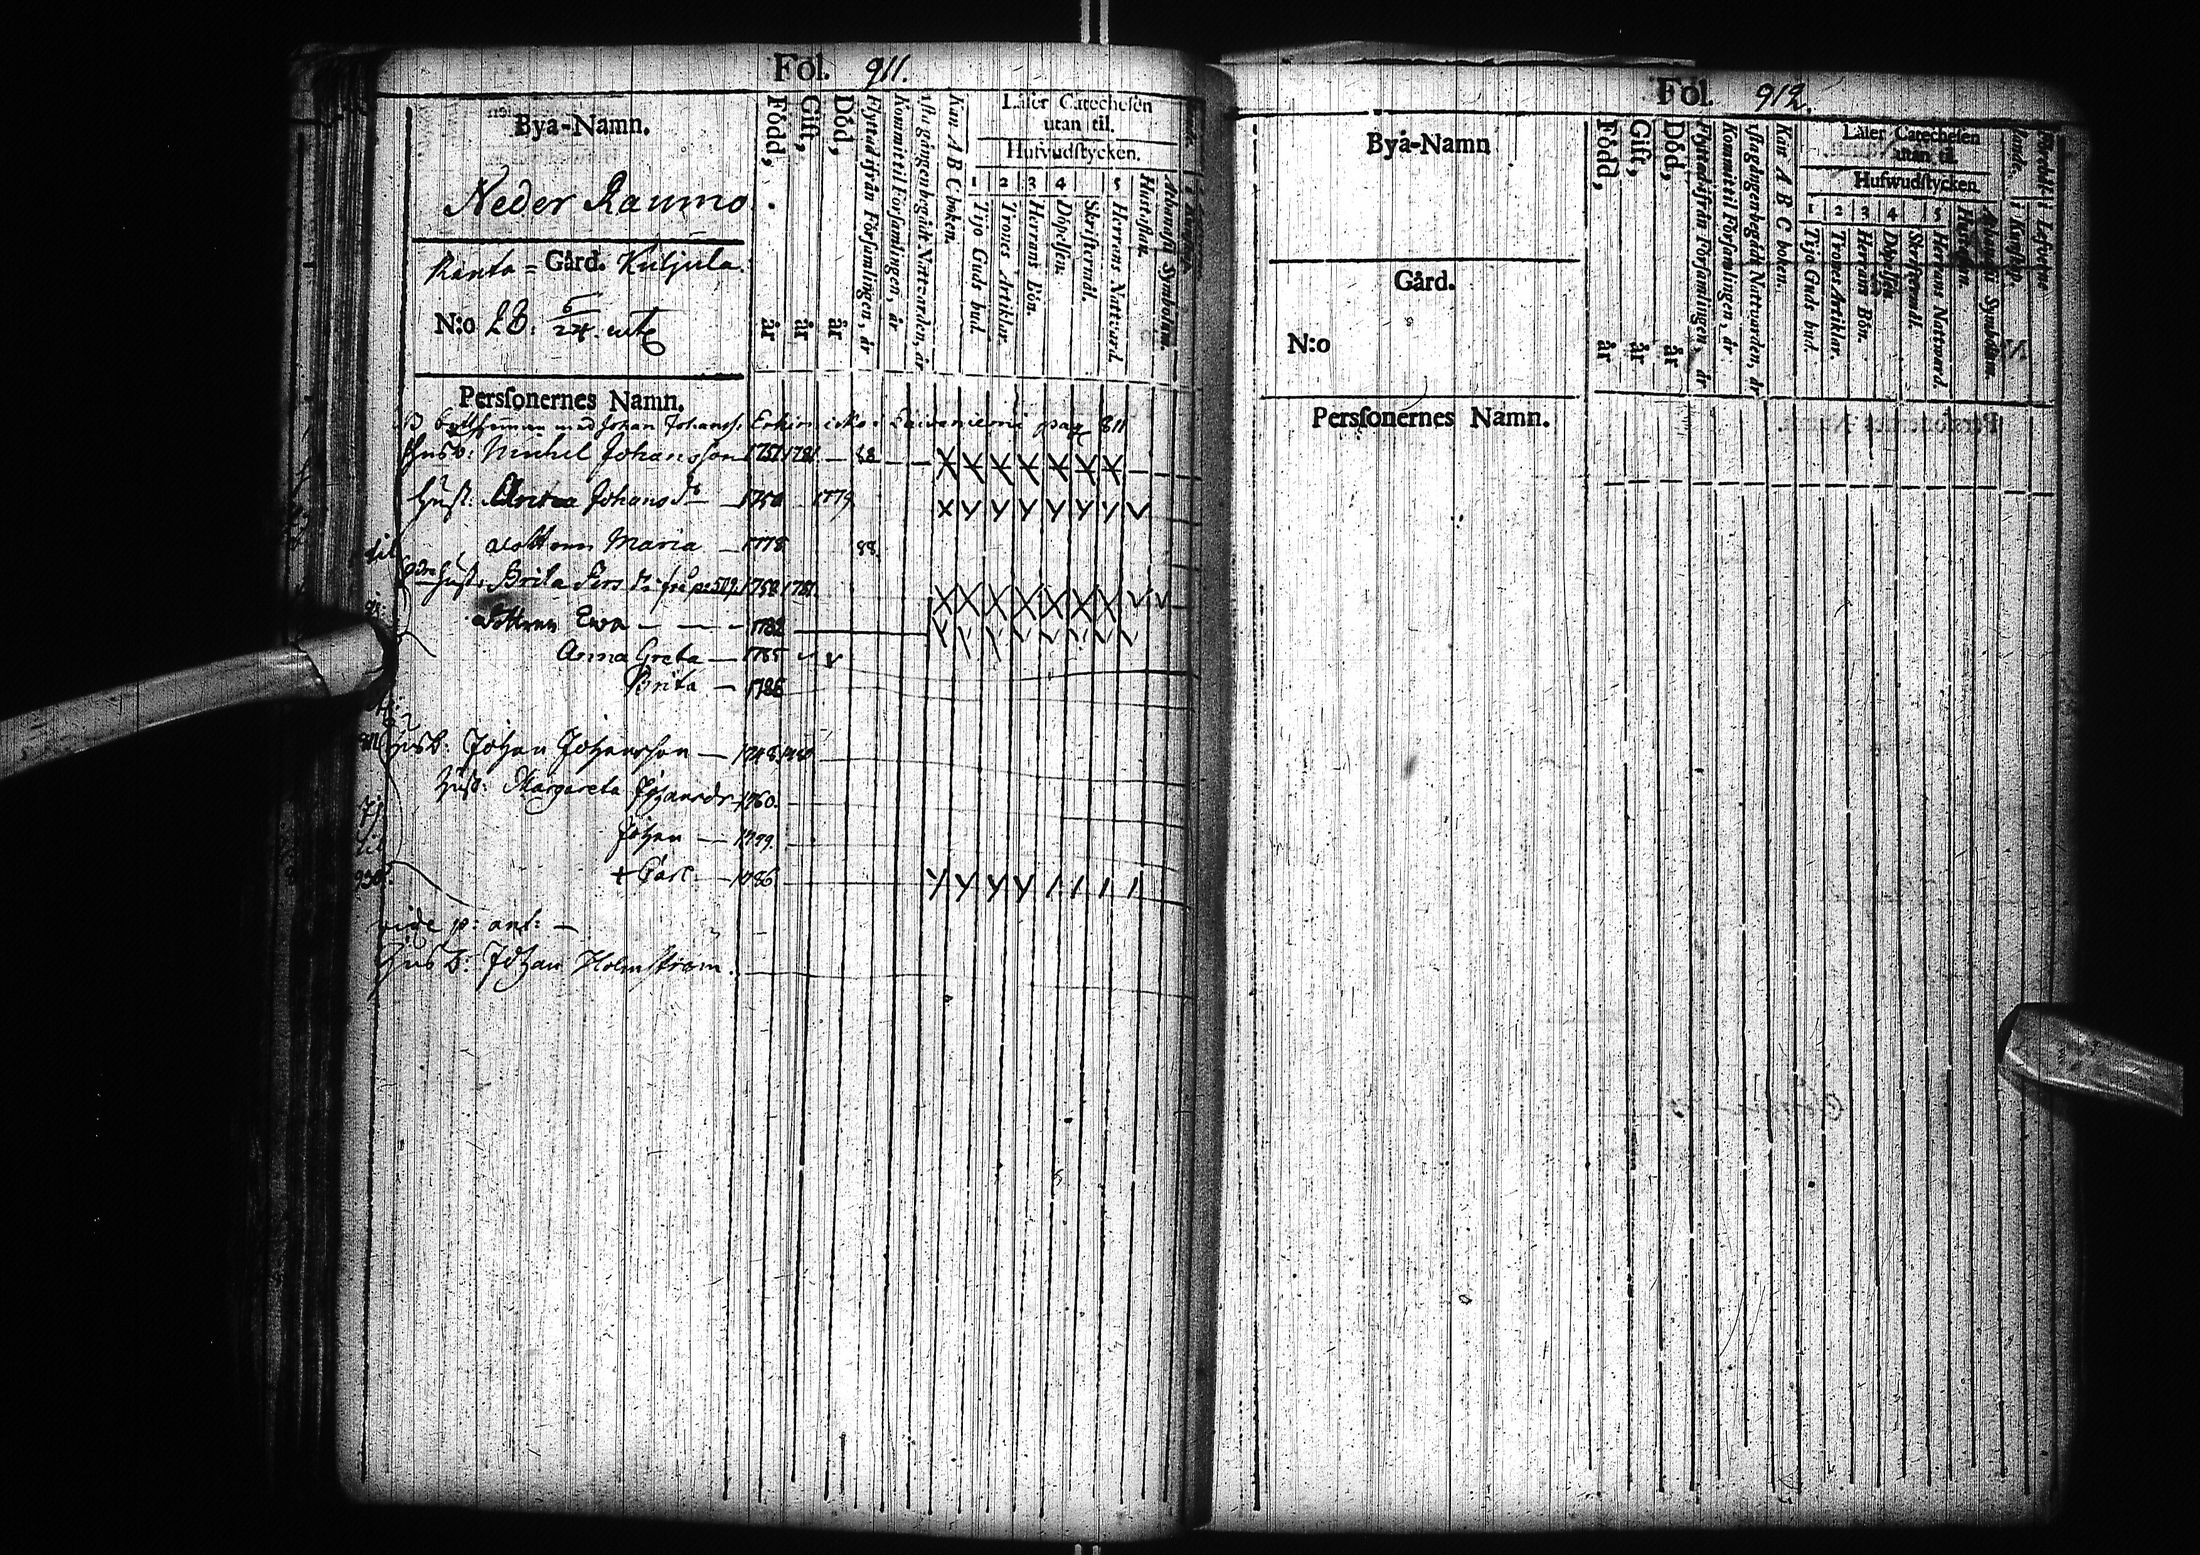 Fol. 911.
Bya-Namn.
Neder Raumo
Ranta = Gård. Kuljula.
N:o 28. 5/24. mtl
Född, år
Gift, år
Död, år
Flyttad ifrån Församlingen, år
Kommit til Församlingen, år
1sta gången begådt Nattvarden, år
Kan A B C boken.
Läser Catechesen
utan til.
Hufvudstycken.
1 Tijo Guds bud.
2 Trones Artiklar.
3 Herrans Bön.
4 Döpelsen.
Skriftermål.
5 Herrans Nattvard.
Hustaflan.
Athanasii Symbolum.
Personernes Namn.
med Johan Johans. pag 811
Husb: Michel Johansson 1751 1781 88
Hust: Johans dr 1750 1779
dottren Maria 1778 88
till
2dra Hust: Brita Pers dr frå p: 509. 1758 1781
dottren Ewa 1782
Anna Greta 1785
Brita 1786
Husb: Johan Johansson 1748
Hust: Margareta Johansdr 1760.
Johan 1779.
+ Carl 1786
vide p: ant:
Husb: Johan Holmström.
Fol. 912.
Bya-Namn
Gård.
N:o
Född, år
Gift, år
Död, år
Flyttad ifrån Församlingen, år
Kommit til Församlingen, år
1sta gången begådt Nattvarden, år
Kan A B C boken.
Läser Catechesen
utan til.
Hufwudstycken.
1 Tijo Guds bud.
2 Trones Artiklar.
3 Herrans Bön.
4 Döpelsen
Skriftermål.
5 Herrans Nattward.
Hustaflan.
Athanasii Symbolum.
Personernes Namn.